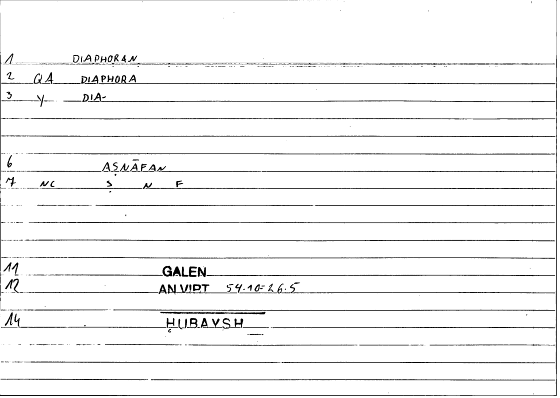 1 DIAPHORAN
2 QA DIAPHORA
3 Y DIA-
6 AṢNĀFAN
7 NC Ṣ N F
11 GALEN
12 AN VIRT 54.10=26.5
14 ḤUBAYSH